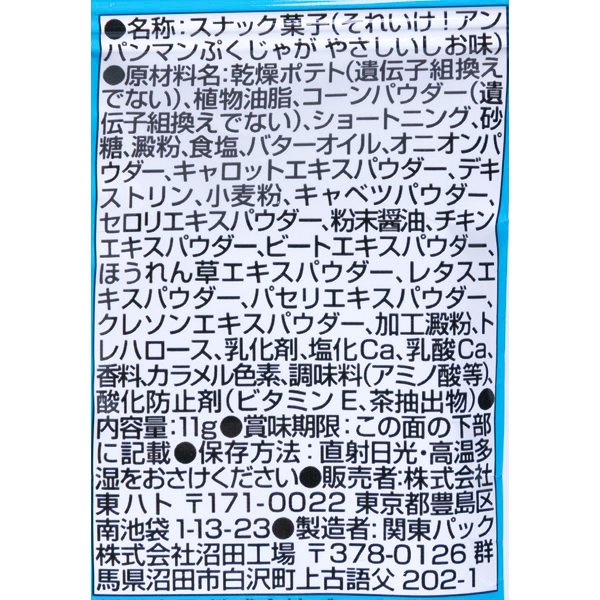 ●名称:スナック菓子(それいけ!アン
パンマンぷくじゃが やさしいしお味)
●原材料名:乾燥ポテト(遺伝子組換え
でない)、植物油脂、コーンパウダー(遺
伝子組換えでない)、ショートニング、砂
糖、澱粉、食塩、バターオイル、オニオンパ
ウダー、キャロットエキスパウダー、デキ
ストリン、小麦粉、キャベツパウダー、
セロリエキスパウダー、粉末醤油、チキン
エキスパウダー、ビートエキスパウダー、
ほうれん草エキスパウダー、レタスエ
キスパウダー、パセリエキスパウダー、
クレソンエキスパウダー、加工澱粉、ト
レハロース、乳化剤、塩化Ca、乳酸Ca、
香料、カラメル色素、調味料(アミノ酸等)、
酸化防止剤(ビタミンE、茶抽出物)●
内容量:11g●賞味期限:この面の下部
に記載●保存方法:直射日光・高温多
湿をおさけください●販売者:株式会社
東ハト 〒171-0022 東京都豊島区
南池袋1-13-23●製造者:関東パック
株式会社沼田工場 〒378-0126 群
馬県沼田市白沢町上古語父 202-1